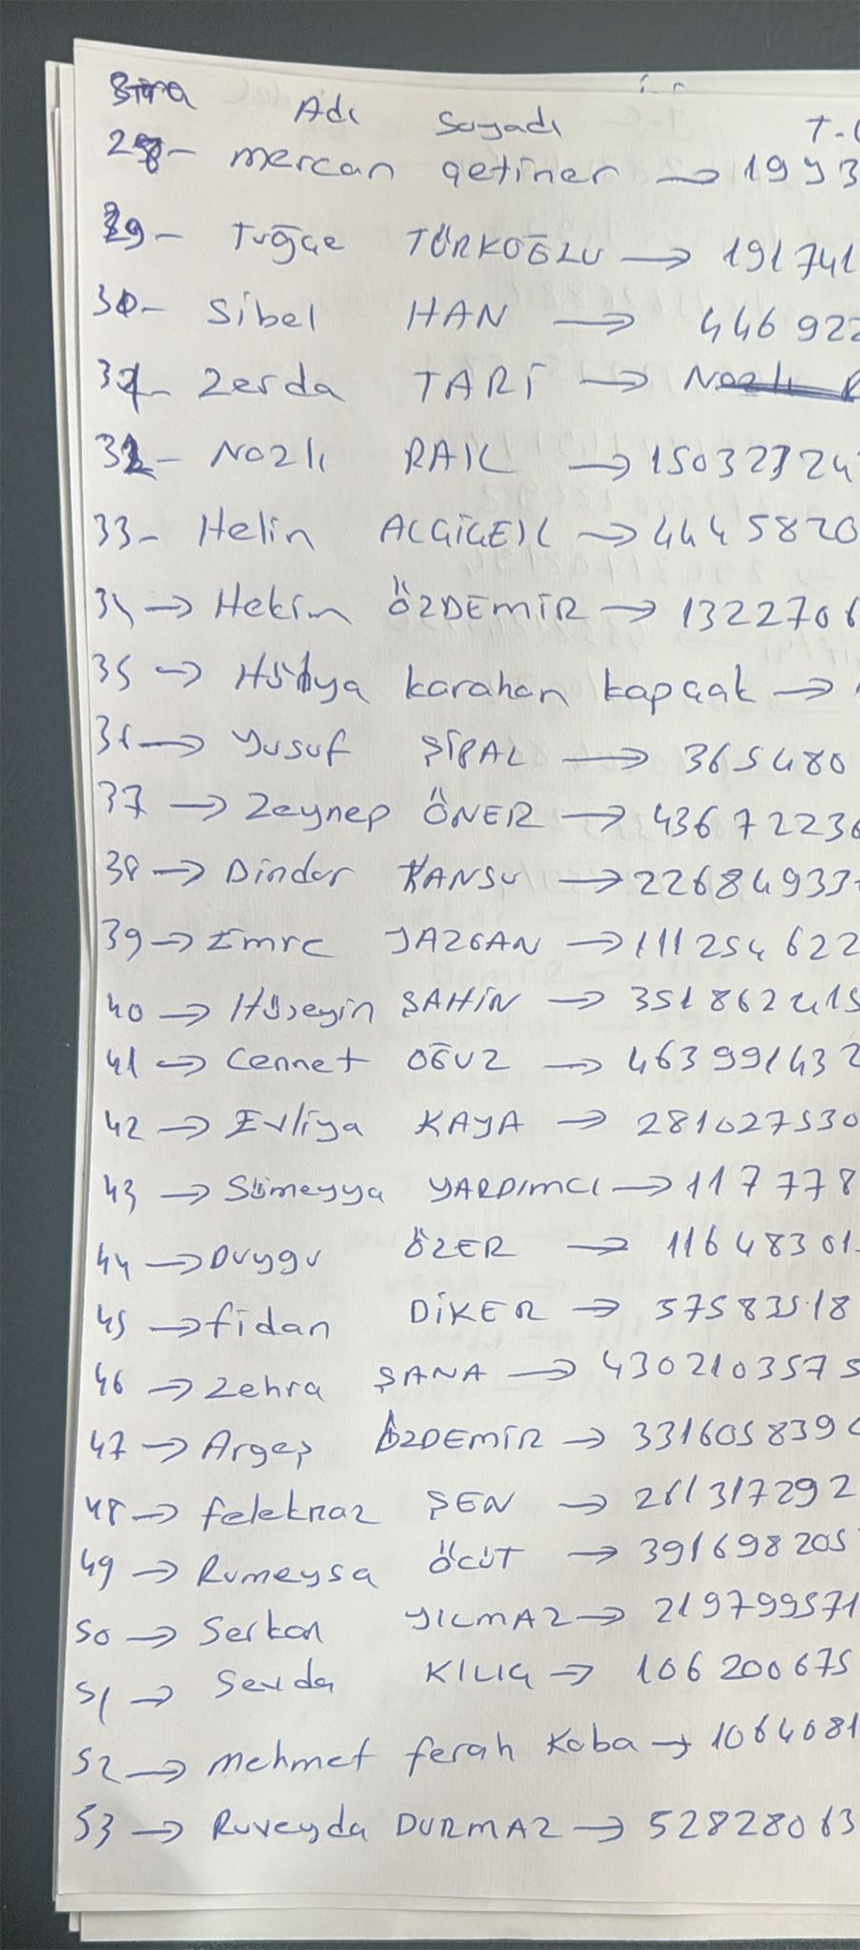 Sıra Adı Soyadı T.C
28- mercan çetiner → 1993
29- Tuğçe TÜRKOĞLU → 191741
30- Sibel HAN → 446922
31- Zerda TARİ → Nazlı
32- Nazlı RAIL → 15032724
33- Helin ALÇİÇEK → 4445820
34 → Hekim ÖZDEMİR → 1322706
35 → Hülya karahan kapçak →
36 → Yusuf ŞİPAL → 365480
37 → Zeynep ÖNER → 43672236
38 → Dindar KANSU → 226849337
39 → Emre YAZGAN → 111254622
40 → Hüseyin ŞAHİN → 351862415
41 → Cennet OĞUZ → 463991432
42 → Evliya KAYA → 281027530
43 → Sümeyya YARDIMCI → 117778
44 → Duygu ÖZER → 11648301
45 → fidan DİKER → 57583518
46 → Zehra ŞANA → 4302103575
47 → Argeş ÖZDEMİR → 331605839
48 → feleknaz ŞEN → 261317292
49 → Rumeysa ÖCÜT → 391698205
50 → Serkan YILMAZ → 219799571
51 → Sevda KILIÇ → 106200675
52 → Mehmet ferah Kaba → 1064081
53 → Ruveyda DURMAZ → 52828063